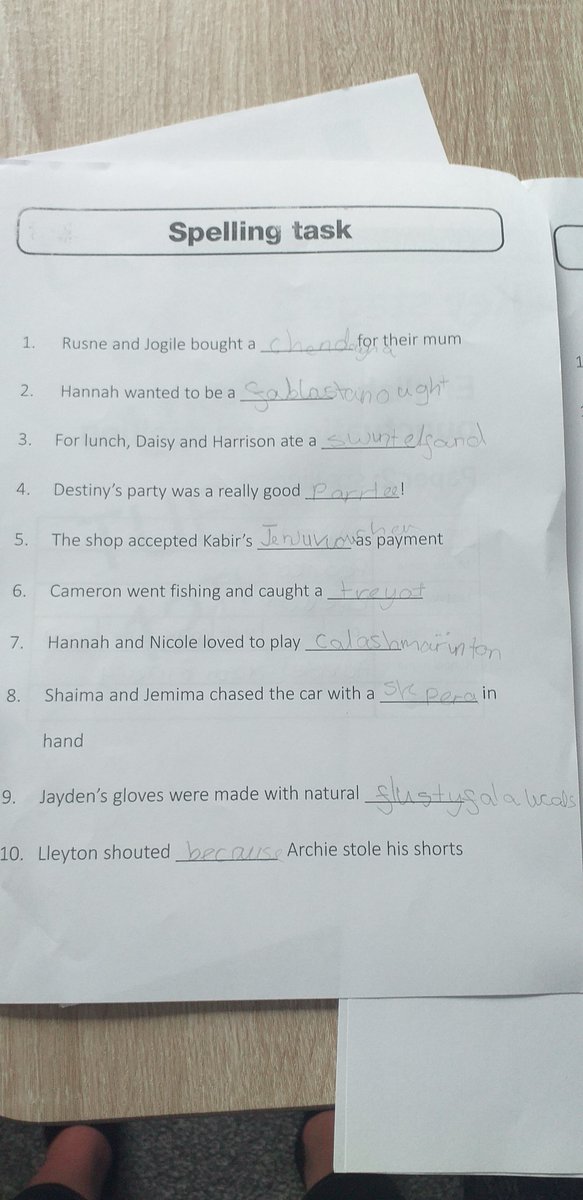 Spelling task
1. Rusne and Jogile bought a chendagna for their mum
2. Hannah wanted to be a gablastanought
3. For lunch, Daisy and Harrison ate a swuntelgand
4. Destiny's party was a really good parrlee!
5. The shop accepted Kabir's as payment
6. Cameron went fishing and caught a treyot
7. Hannah and Nicole loved to play calashmarinton
8. Shaima and Jemima chased the car with a in
hand
9. Jayden's gloves were made with natural
10. Lleyton shouted because Archie stole his shorts
1